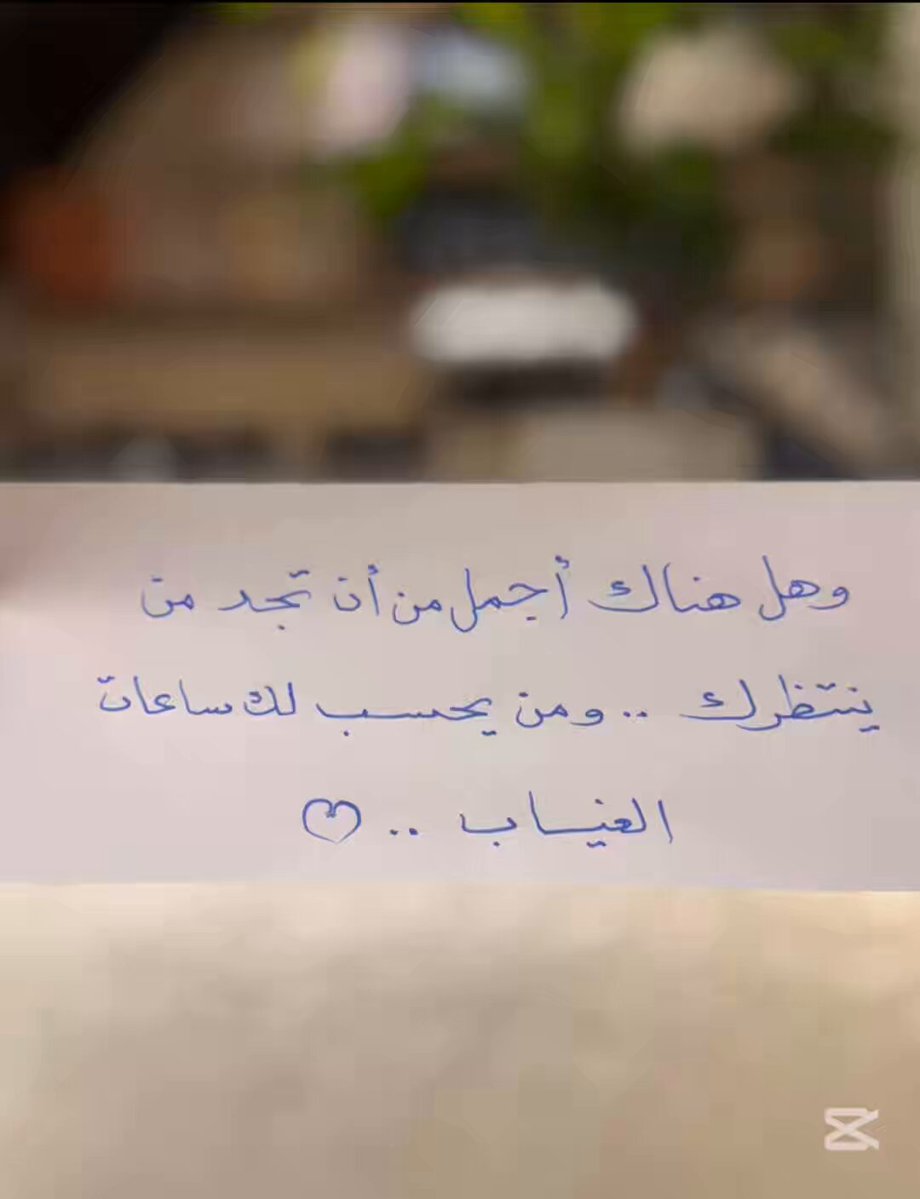 وهل هناك أجمل من أن تجد من
ينتظرك .. ومن يحسب لك ساعات
الغياب .. ♡